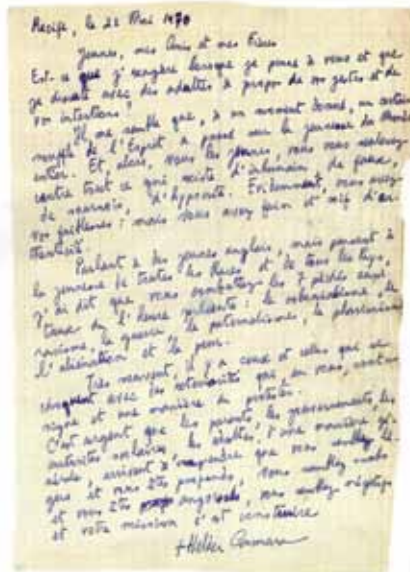 Recife, le 22 Mai 1970
Jeunes, mes Amis et mes Frères
Est-ce que j'exagère lorsque je pense à vous et que
je discute avec des adultes à propos de vos gestes et de
vos intentions?
Il me semble que, à un moment donné, un certain
souffle de l'Esprit a passé sur la jeunesse du Monde
entier. Et, alors, vous les jeunes, vous vous
contre tout ce qui existe d'inhumain, de faux,
de mauvais, d'hypocrite. Évidemment, vous avez
vos faiblesses: mais vous avez faim et soif d'au-
thenticité.
Parlant à des jeunes anglais, mais pensant à
la jeunesse de toutes les Races et de tous les Pays,
j'ai dit que vous combattez les 7 péchés capi-
taux de l'heure présente: le colonialisme, le
racisme, la guerre, le paternalisme, le pharisaïsme,
l'aliénation et la peur.
Très souvent, il y a ceux et celles qui se
choquent avec les extériorités qui, en vous, sont un
signe et une manière de protester.
C'est urgent que les parents, les gouvernements, les
autorités scolaires, les adultes, d'une manière gé-
nérale, arrivent à comprendre que vous semblez lé-
gers et vous êtes profonds, vous semblez
et vous êtes angoissés, vous semblez négatifs
et votre mission c'est construire
+ Helder Camara